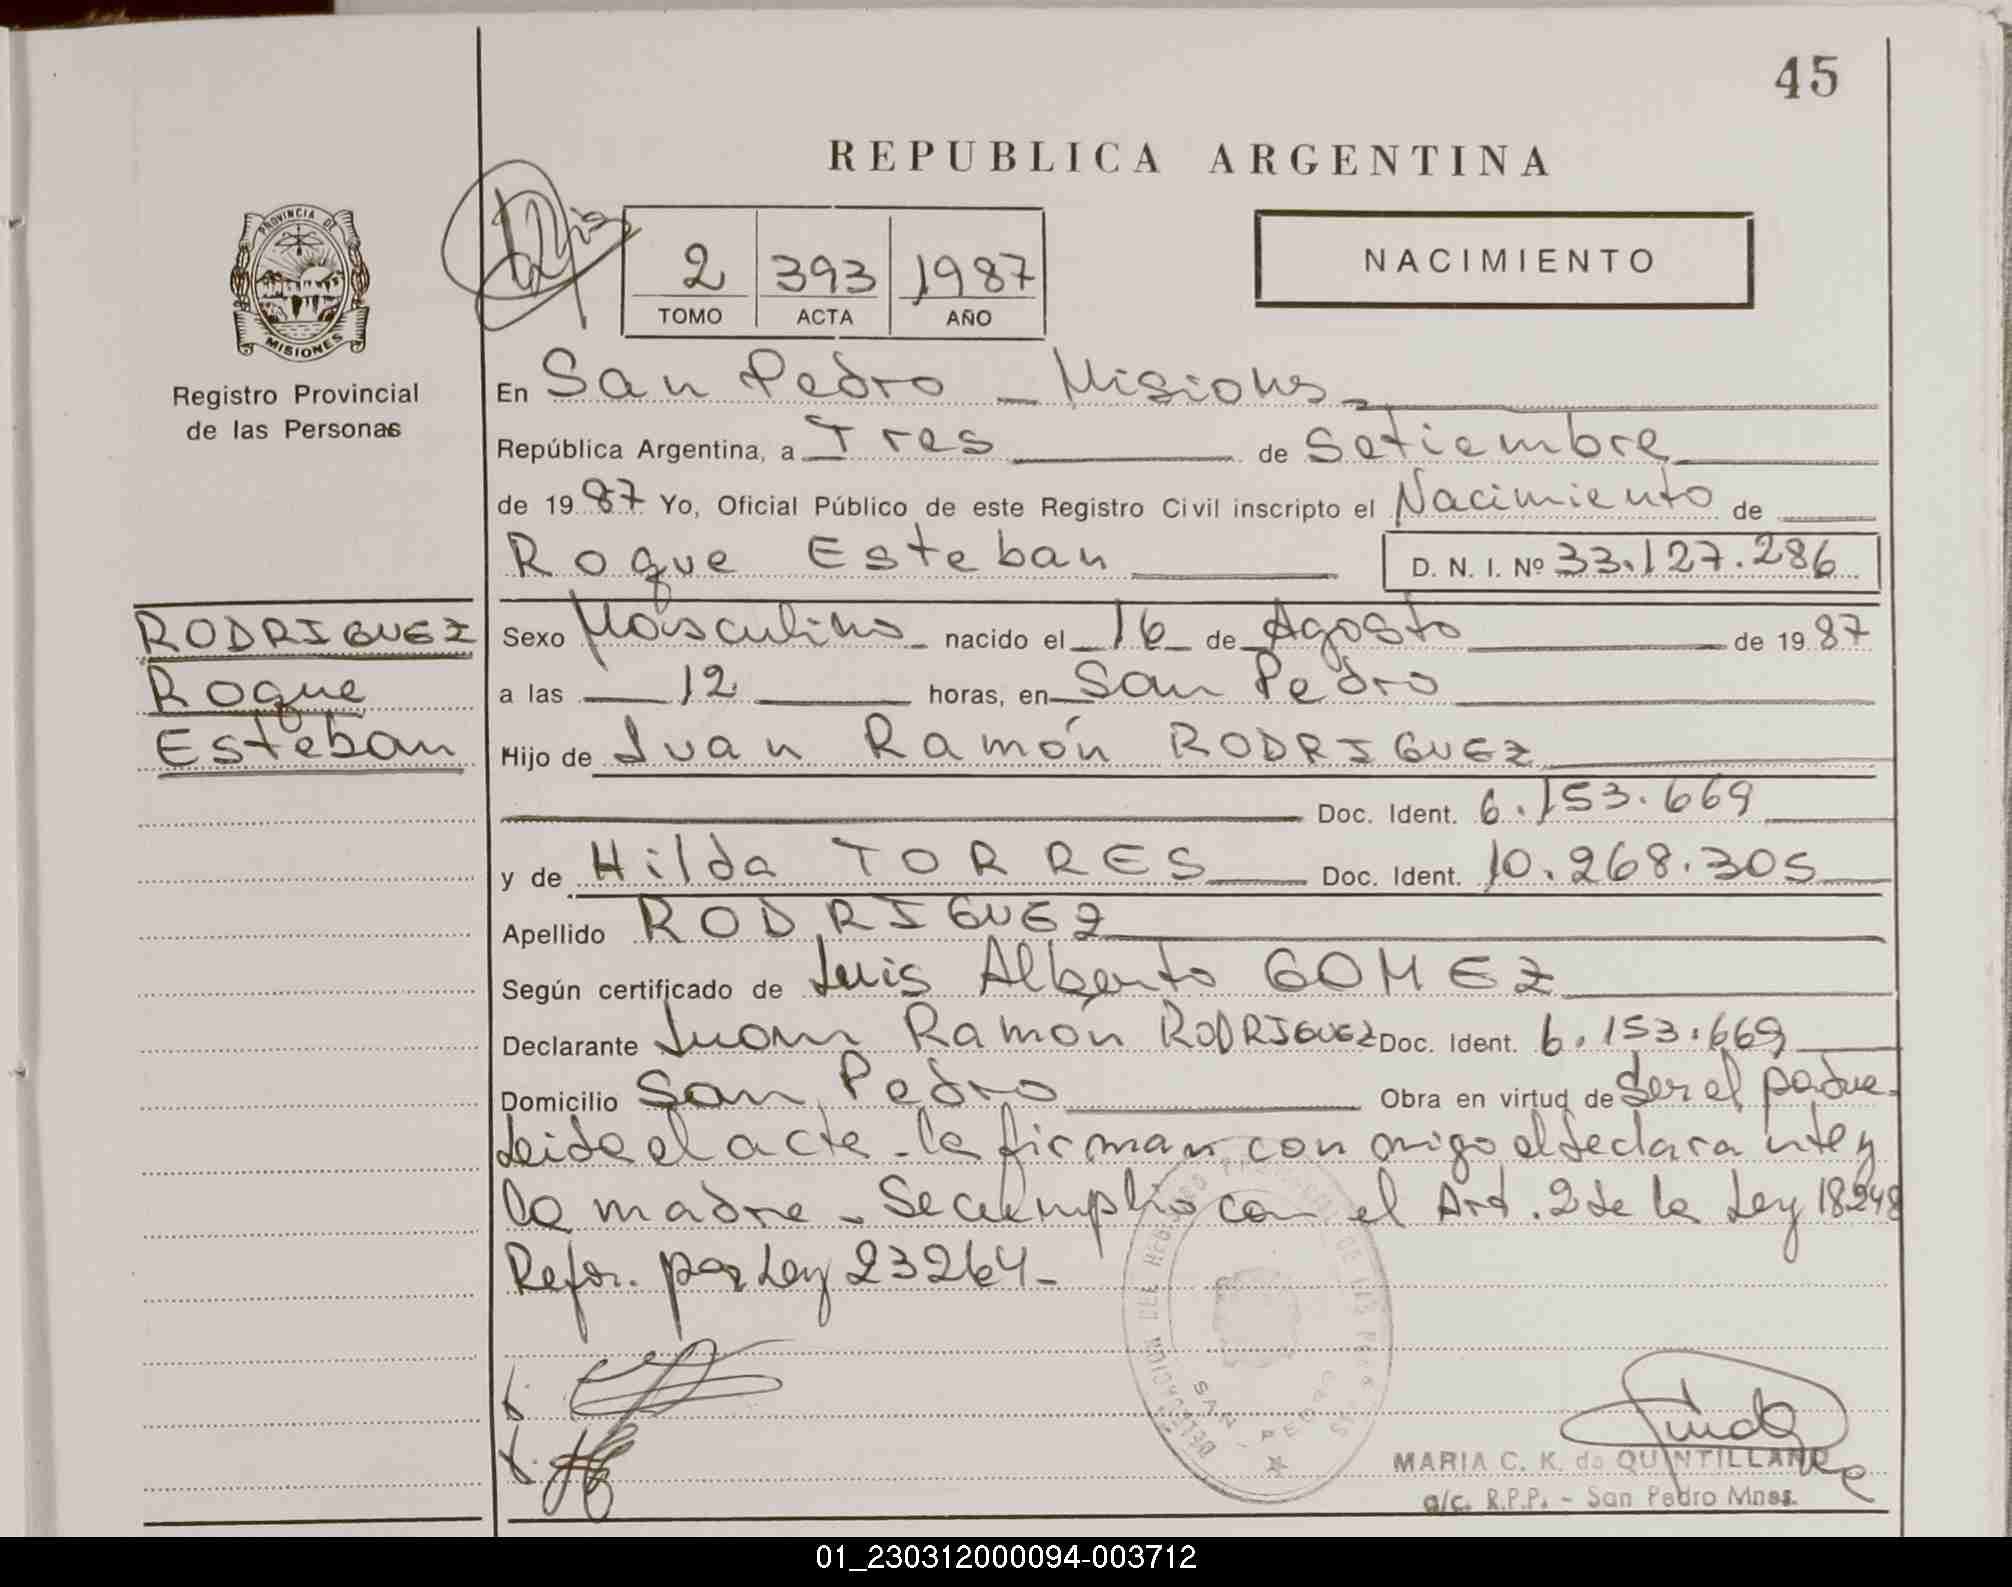 45
REPUBLICA ARGENTINA
NACIMIENTO
2 393 1987
TOMO ACTA AÑO
PROVINCIA DE
MISIONES
Registro Provincial
de las Personas
En San Pedro - Misiones
República Argentina, a Tres de Setiembre
de 1987 Yo, Oficial Público de este Registro Civil inscripto el Nacimiento de
Roque Esteban D. N. I. Nº 33.127.286
RODRIGUEZ
Roque
Esteban
Sexo Masculino nacido el 16 de Agosto de 1987
a las 12 horas, en San Pedro
Hijo de Juan Ramón RODRIGUEZ
Doc. Ident. 6.153.669
y de Hilda TORRES Doc. Ident. 10.268.305
Apellido RODRIGUEZ
Según certificado de Luis Alberto GOMEZ
Declarante Juan Ramón RODRIGUEZ Doc. Ident. 6.153.669
Domicilio San Pedro Obra en virtud de ser el padre-
Leida el acta - la firman conmigo el declarante y
la madre - Se cumplio con el Art. 2 de la Ley 18248
Refor. por Ley 23264-
SAN - PEDRO
MARIA C. K. de QUINTILLAN
a/c. R.P.P. - San Pedro Mnes.
01_230312000094-003712